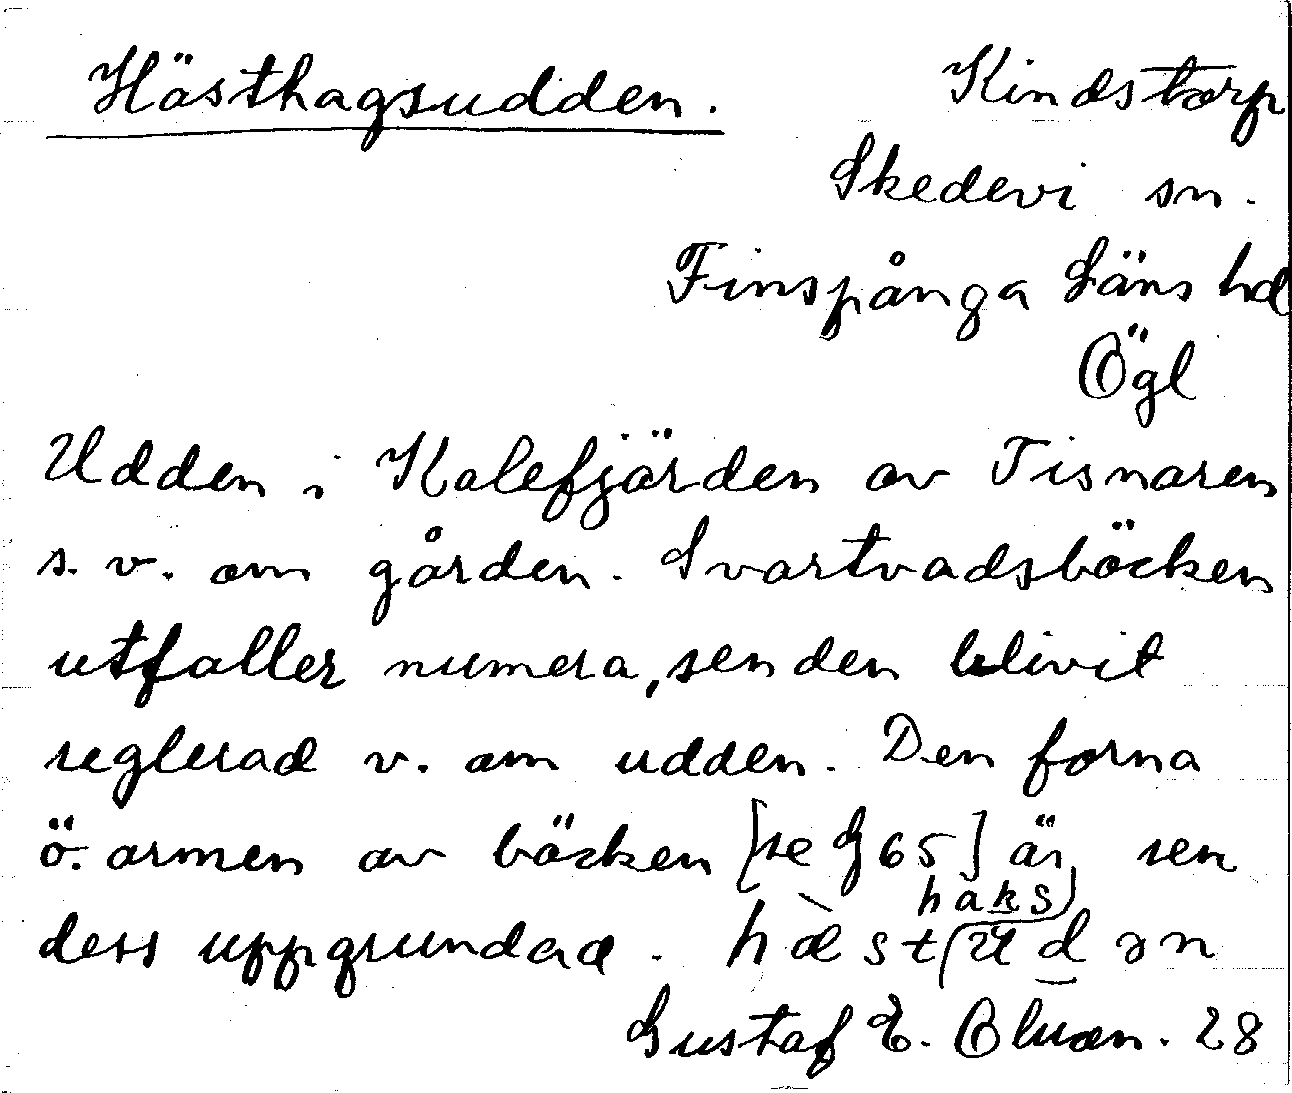 Hästhagsudden. Kindstorp
Skedevi sn.
Finspånga Läns hd
Ögl
Udden i Kalefjärden av Tisnaren
s. v. om gården. Svartvadsbäcken
utfaller numera, sen den blivit
reglerad v. om udden. Den forna
ö. armen av bäcken [se G 65] är sen
dess uppgrundad.
Gustaf E. 28